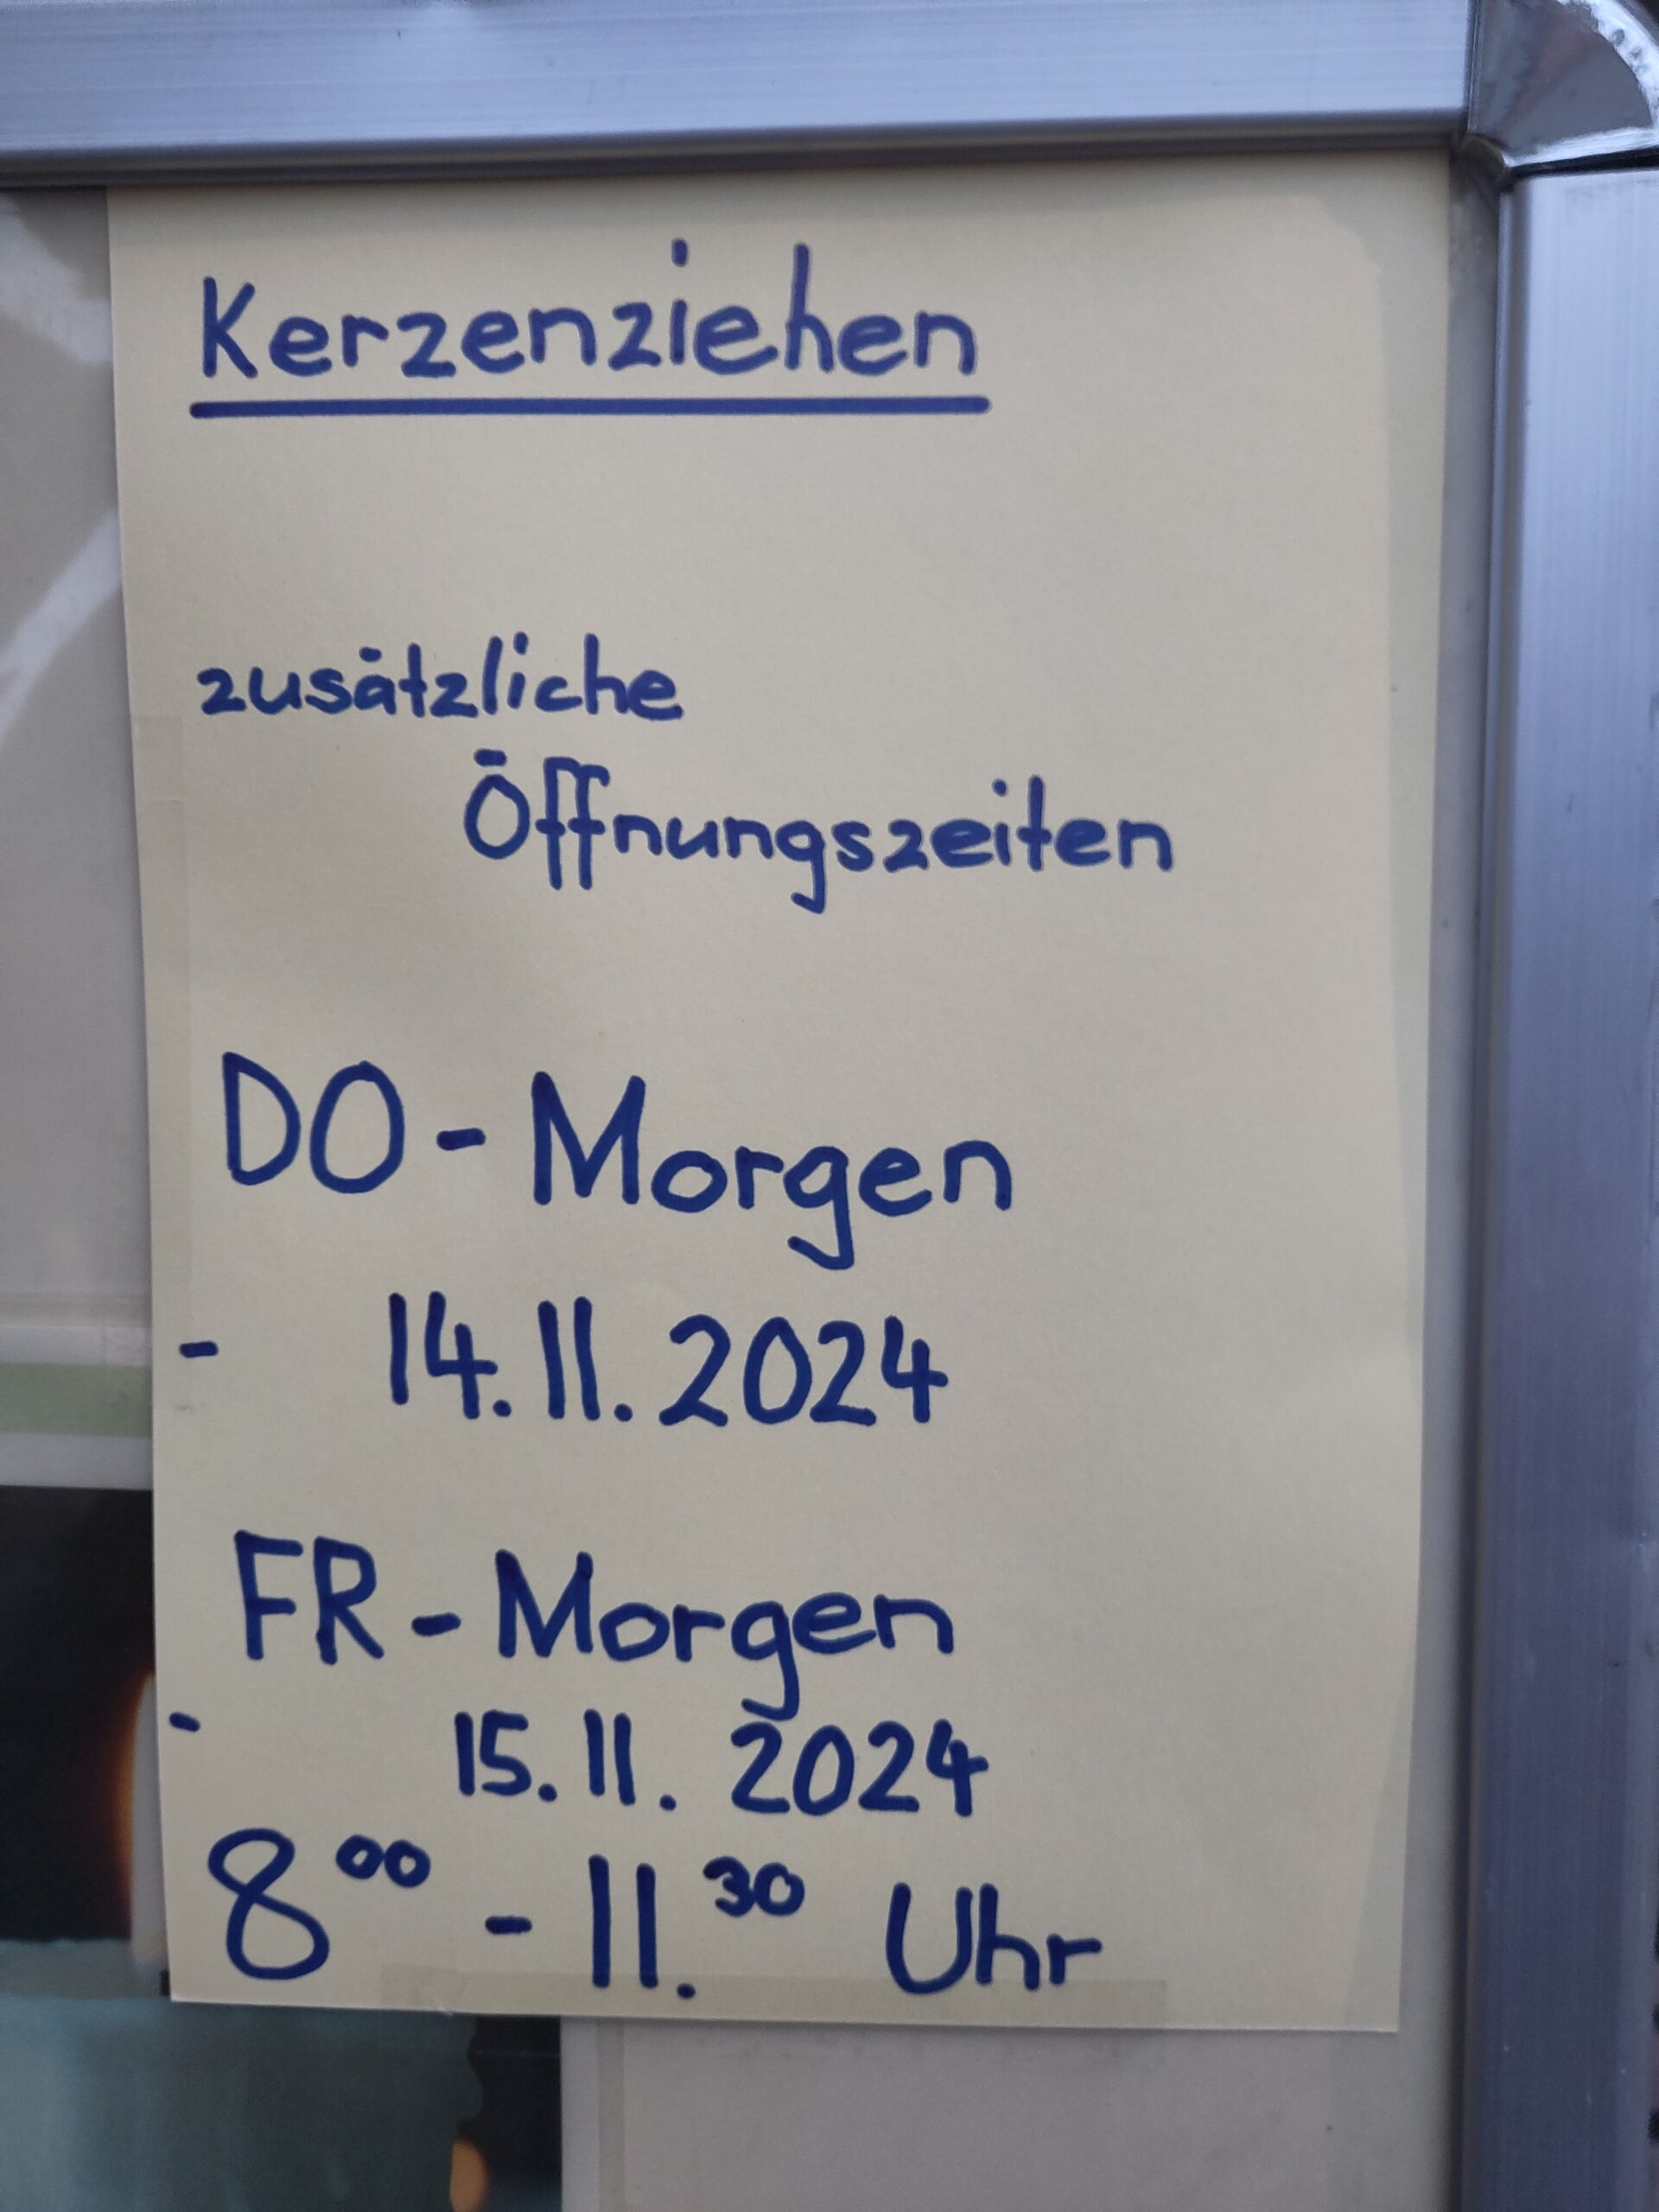 Kerzenziehen
zusätzliche
Öffnungszeiten
DO - Morgen
- 14.11.2024
FR - Morgen
- 15.11. 2024
8⁰⁰ - 11.³⁰ Uhr